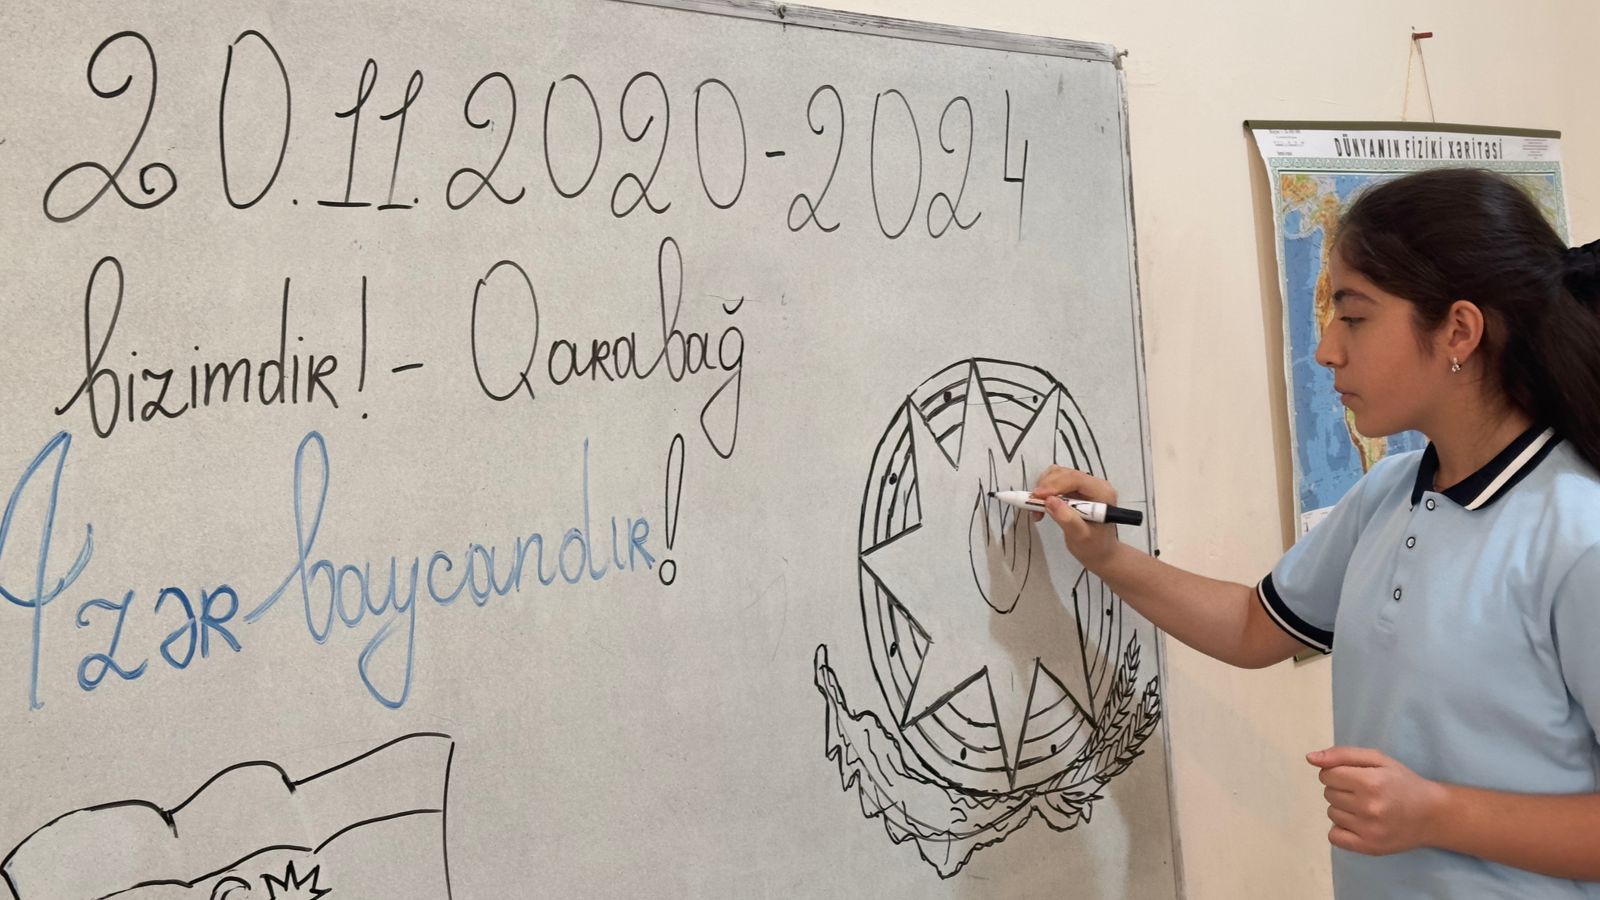 20.11.2020-2024
bizimdir!- Qarabağ
Azərbaycandır!
DÜNYANIN FİZİKİ XƏRİTƏSİ